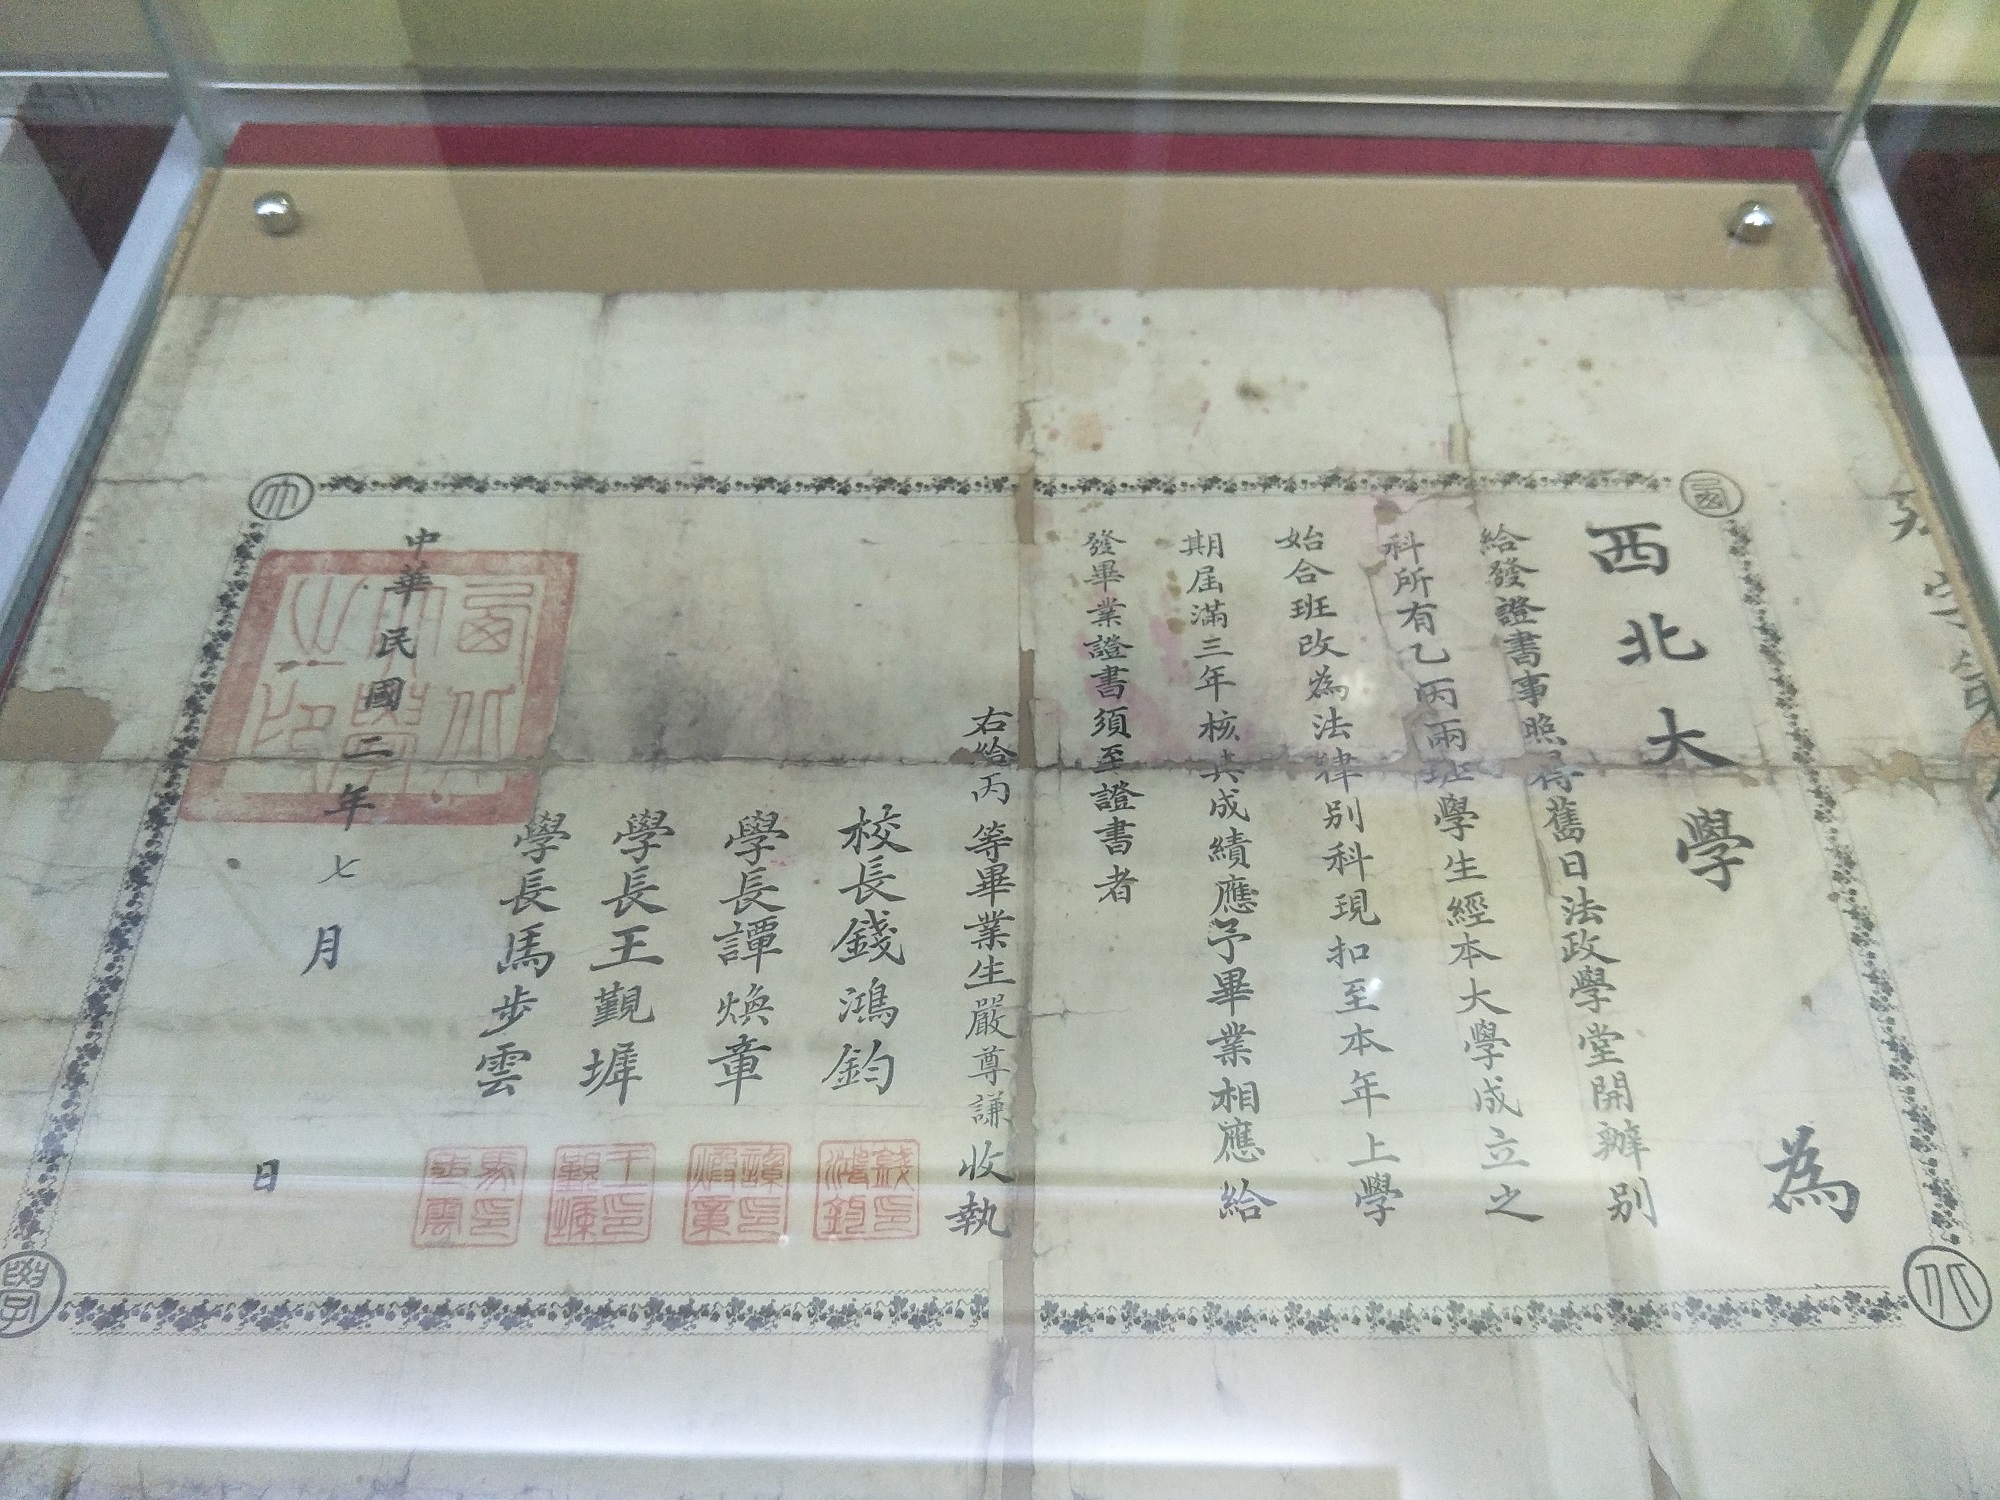 西北大學為
給發證書事照得舊日法政學堂開辦別
科所有乙丙兩班學生經本大學成立之
始合班改為法律別科現扣至本年上學
期屆滿三年核其成績應予畢業相應給
發畢業證書須至證書者
右給丙等畢業生嚴尊謙收執
校長錢鴻鈞
學長譚煥章
學長王觀墀
學長馬步雲
中華民國二年七月日
西
北
大
學
西北大學之印
錢鴻鈞印
譚煥章印
王觀墀印
馬步雲印